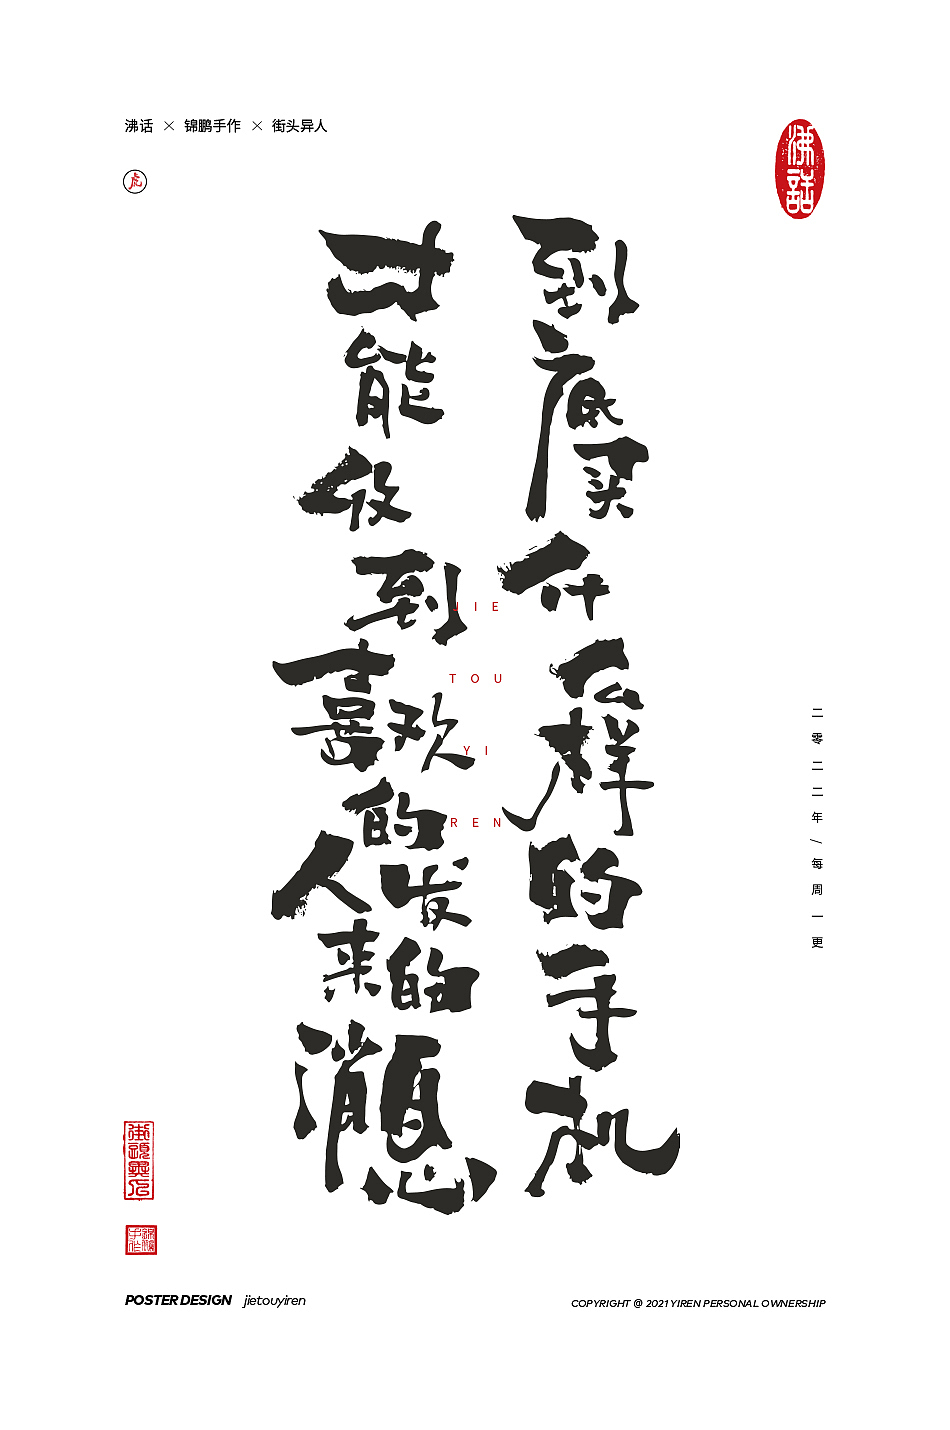 沸话 × 锦鹏手作 × 街头异人
虎
沸話
到底买什么样的手机
才能收到喜欢的人发来的消息
JIE
TOU
YI
REN
二零二二年/每周一更
街頭異人
POSTER DESIGN jietouyiren
COPYRIGHT @ 2021 YIREN PERSONAL OWNERSHIP